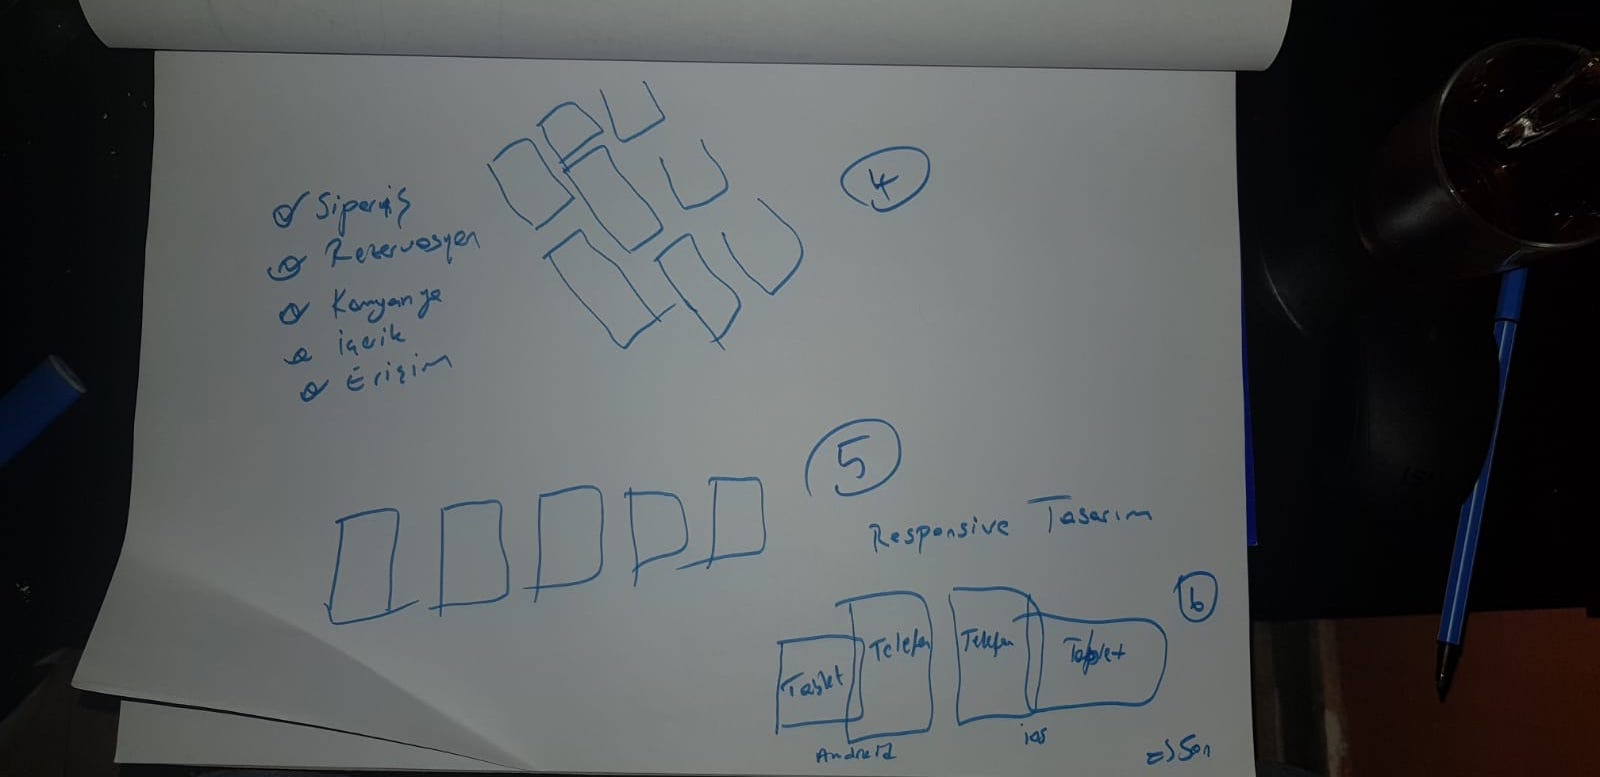 Sipariş
Rezervasyon
Kampanya
İçerik
Erişim
4
5
Responsive Tasarım
6
Tablet
Telefon
Telefon
Tablet
Android
ios
=> Son